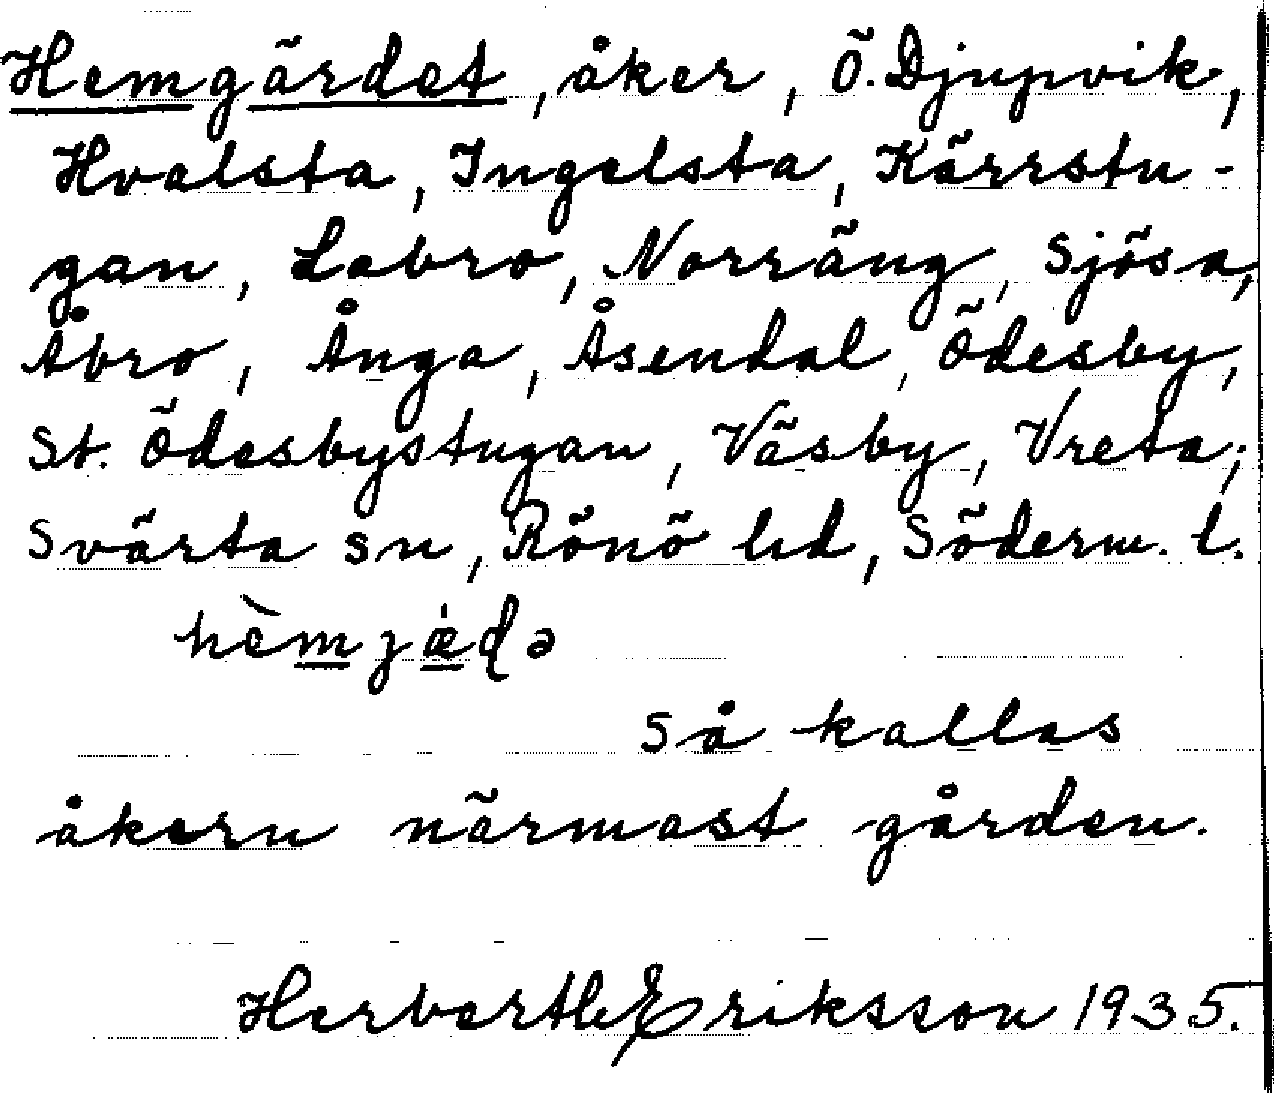 Hemgärdet, åker, Ö. Djupvik,
Hvalsta, Ingelsta, Kärrstu-
gan, Labro, Norräng, Sjösa,
Åbro, Ånga, Åsendal, Ödesby,
St. Ödesbystugan, Väsby, Vreta;
Svärta sn, Rönö hd, Söderm. l.
hèmjæ̍ɖə
Så kallas
åkern närmast gården.
Herbert Eriksson 1935.